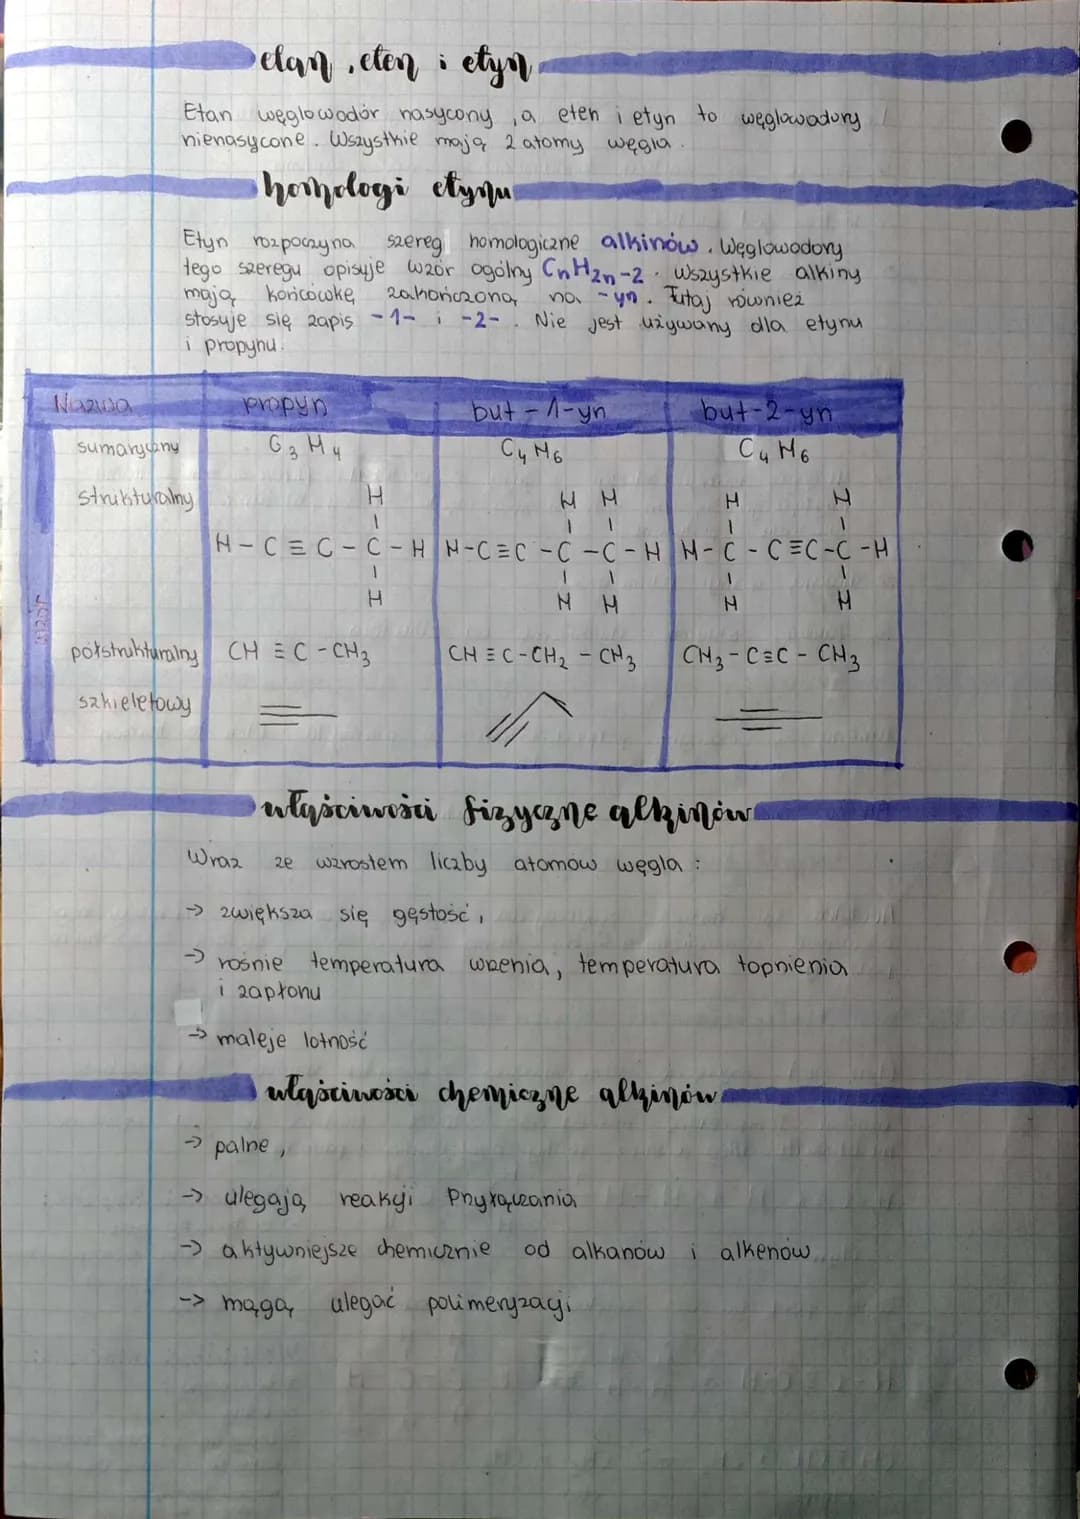 etan, eten i etyn
Etan węglowodór nasycony, a eten i etyn to węglowodory
nienasycone. Wszystkie mają 2 atomy węgla.
homologi etynu
Etyn rozpoczyna szereg homologiczne alkinów. Węglowodory
tego szeregu opisuje wzór ogólny CnH2n-2. Wszystkie alkiny
mają końcówkę zakończoną na -yn. Tutaj również
stosuje się zapis -1- i -2-. Nie jest używany dla etynu
i propynu.
Nazwa propyn but-1-yn but-2-yn
wzór
sumaryczny C3H4 C4H6 C4H6
strukturalny H H H H H
H-C≡C-C-H H-C≡C-C-C-H H-C-C≡C-C-H
H H H H H
półstrukturalny CH≡C-CH3 CH≡C-CH2-CH3 CH3-C≡C-CH3
szkieletowy
właściwości fizyczne alkinów
Wraz ze wzrostem liczby atomów węgla:
-> zwiększa się gęstość,
-> rośnie temperatura wrzenia, temperatura topnienia
i zapłonu
-> maleje lotność
właściwości chemiczne alkinów
-> palne,
-> ulegają reakcji przyłączania
-> aktywniejsze chemicznie od alkanów i alkenów
-> mągą ulegać polimeryzacji